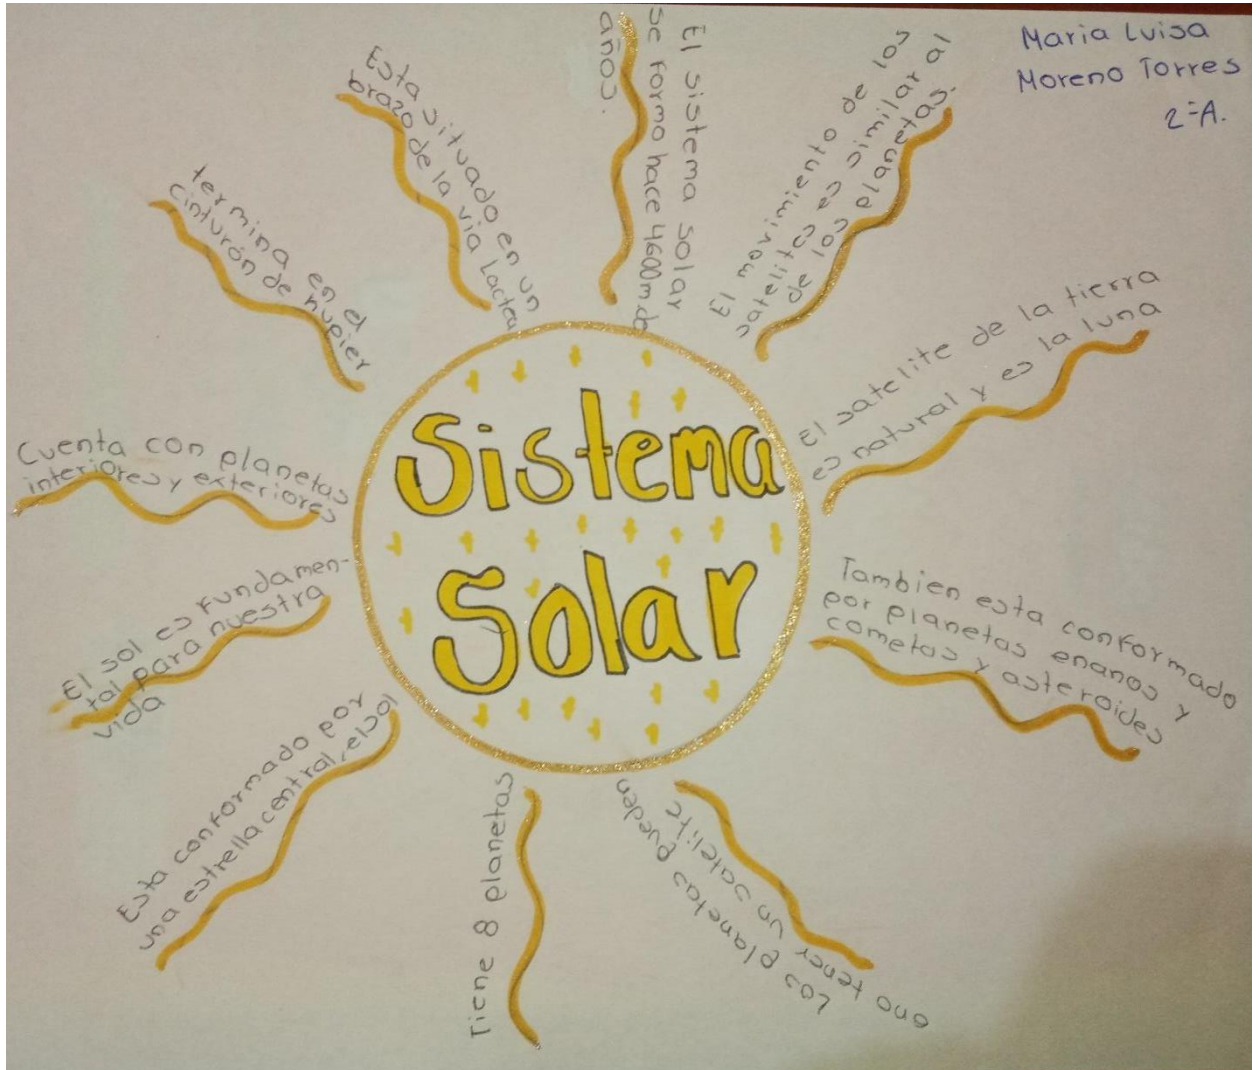 Maria Luisa
Moreno Torres
2-A.
Sistema
Solar
El sistema solar
se formo hace 4600m.de
años.
El movimiento de los
satelites es similar al
de los planetas.
El satelite de la tierra
es natural y es la luna
Tambien esta conformado
por planetas enanos y
cometas y asteroides
Los planetas pueden
o no tener un satelite
Tiene 8 planetas
Esta conformado por
una estrella central, el sol
El sol es fundamen-
tal para nuestra
vida
Cuenta con planetas
interiores y exteriores
termina en el
cinturón de
Esta situado en un
brazo de la via Lactea